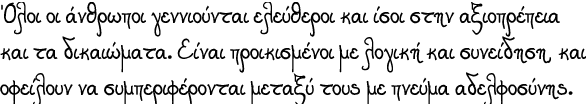 Όλοι οι άνθρωποι γεννιούνται ελεύθεροι και ίσοι στην αξιοπρέπεια
και τα δικαιώματα. Είναι προικισμένοι με λογική και συνείδηση, και
οφείλουν να συμπεριφέρονται μεταξύ τους με πνεύμα αδελφοσύνης.